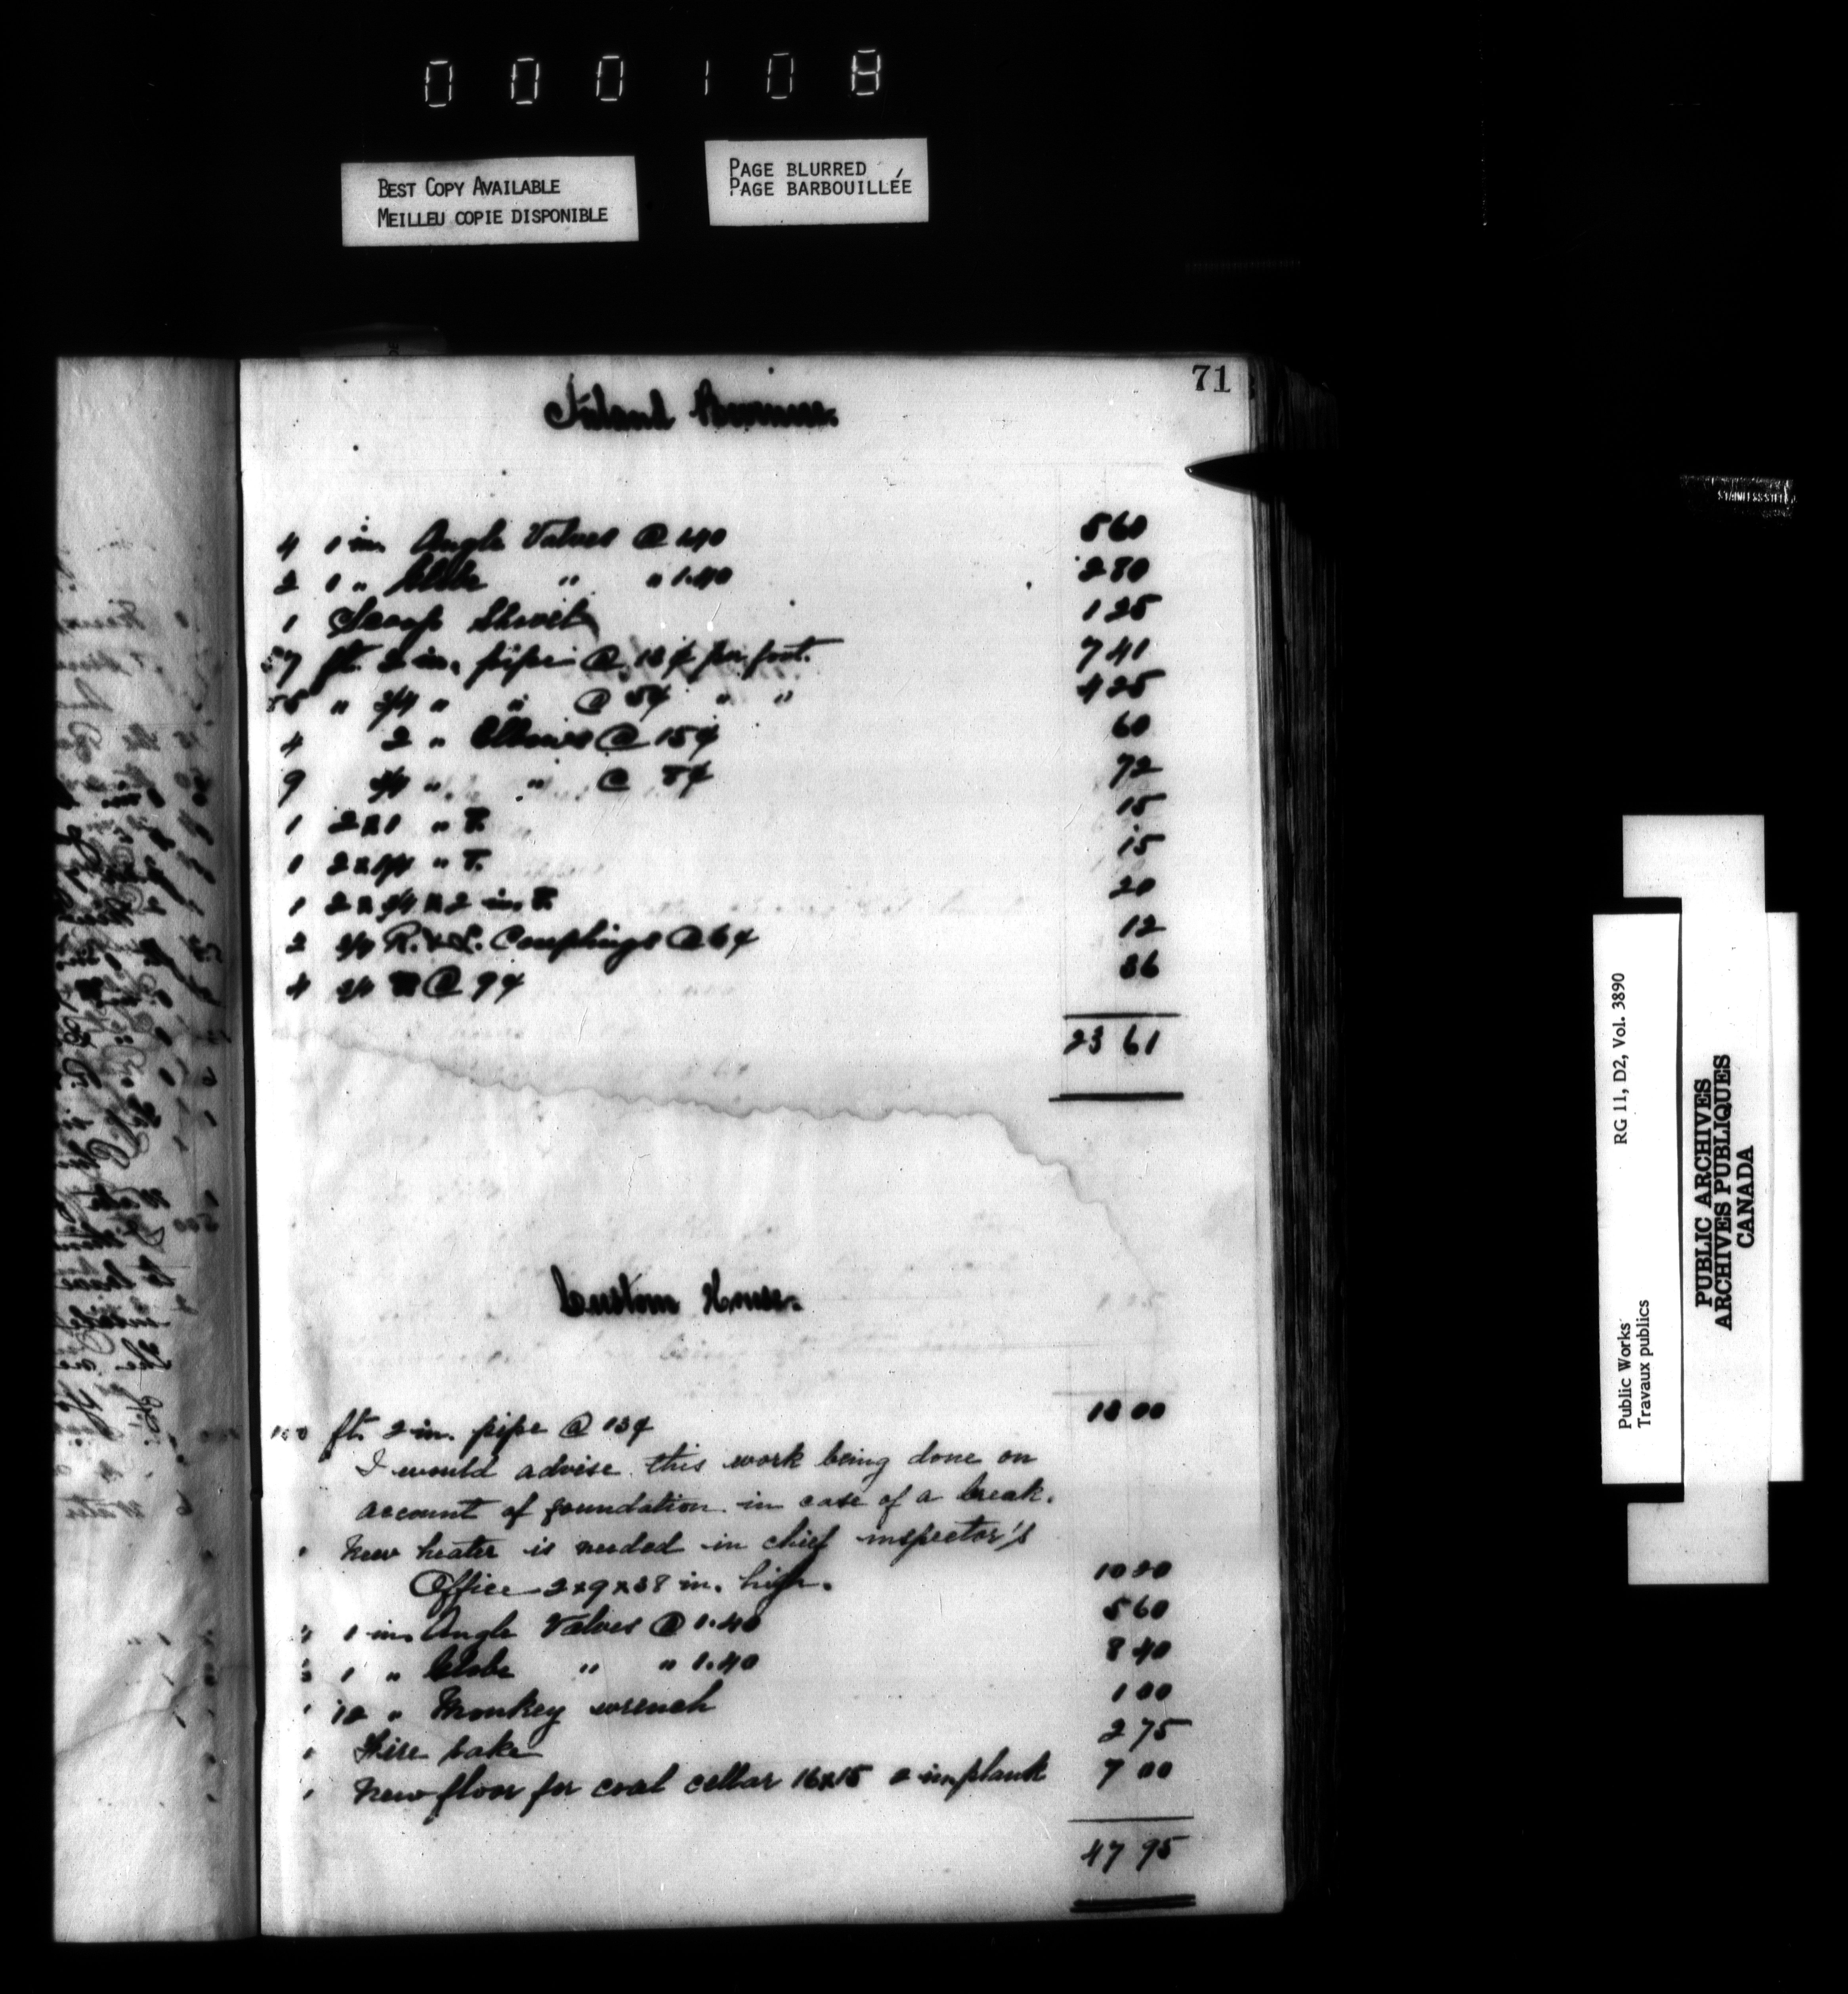 000108
BEST COPY AVAILABLE
MEILLEU COPIE DISPONIBLE
PAGE BLURRED
PAGE BARBOUILLÉE
71
Inland Revenue.
4 1 in. Angle Valves @ 1.40 5 60
2 1 " Globe " " 1.40 2 80
1 Scoop Shovel 1 25
57 ft. 2 in. pipe @ 13¢ per foot. 7 41
85 " 3/4 " " @ 5¢ " " 4 25
4 2 " Elbows @ 15¢ 60
9 3/4 " " @ 8¢ 72
1 2 x 1 " T. 15
1 2 x 3/4 " T. 15
1 2 x 3/4 x 2 in. T. 20
2 3/4 R. & L. Couplings @ 6¢ 12
4 3/4 @ 9¢ 36
23 61
Custom House.
100 ft. 2 in. pipe @ 13¢ 13 00
I would advise this work being done on
account of foundation in case of a break.
1 New heater is needed in chief inspector's
Office 2 x 9 x 38 in. high. 10 20
4 1 in. Angle Valves @ 1.40 5 60
6 1 " Globe " " 1.40 8 40
1 12 " Monkey wrench 1 00
1 Fire rake 2 75
1 New floor for coal cellar 16 x 15 2 in plank 7 00
47 95
STAINLESS STEEL
RG 11, D2, Vol. 3890
Public Works
Travaux publics
PUBLIC ARCHIVES
ARCHIVES PUBLIQUES
CANADA